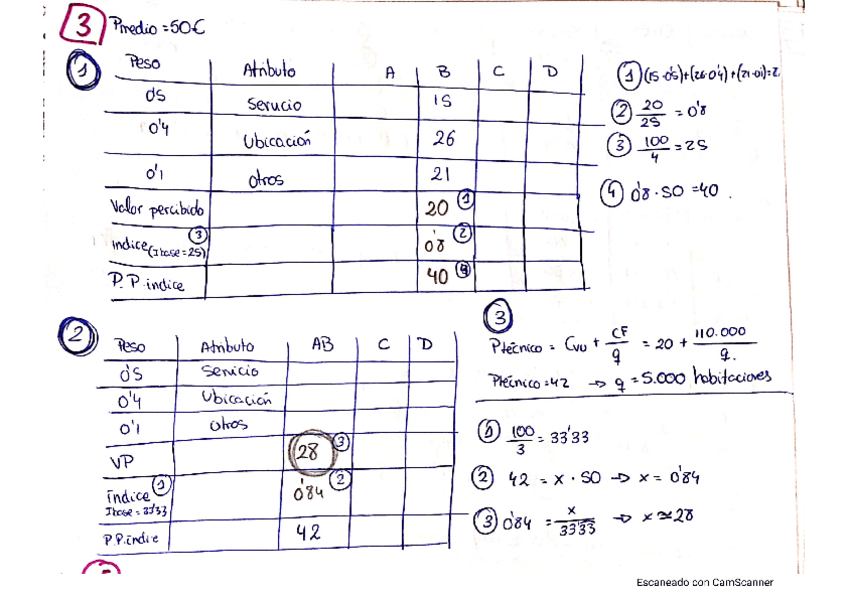 3 Pmedio = 50€
1
Peso Atributo A B C D
0'5 Servicio 15
0'4 Ubicación 26
0'1 otros 21
Valor percibido 20 1
índice (Ibase = 25) 3 0'8 2
P.P. índice 40 4
1 (15·0'5)+(26·0'4)+(21·0'1)=2
2 20/25 = 0'8
3 100/4 = 25
4 0'8 · 50 = 40.
2
Peso Atributo AB C D
0'5 Servicio
0'4 Ubicación
0'1 otros
VP 28 3
índice 1 0'84 2
Ibase = 33'33
P.P. índice 42
3
Ptécnico = Cvu + CF/q = 20 + 110.000/q.
Ptécnico = 42 → q = 5.000 habitaciones
1 100/3 = 33'33
2 42 = x · 50 → x = 0'84
3 0'84 = x/33'33 → x ≃ 28
Escaneado con CamScanner